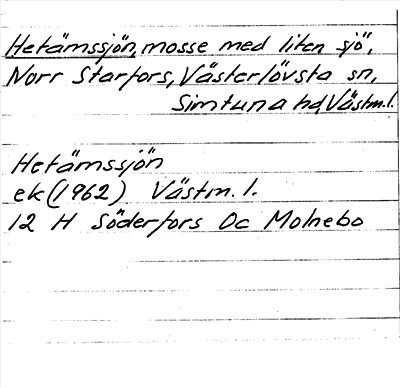 Hetämssjön, mosse med liten sjö,
Norr Starfors, Västerlövsta sn,
Simtuna hd, Västm.l.
Hetämssjön
ek (1962) Västm.l.
12 H Söderfors Dc Molnebo